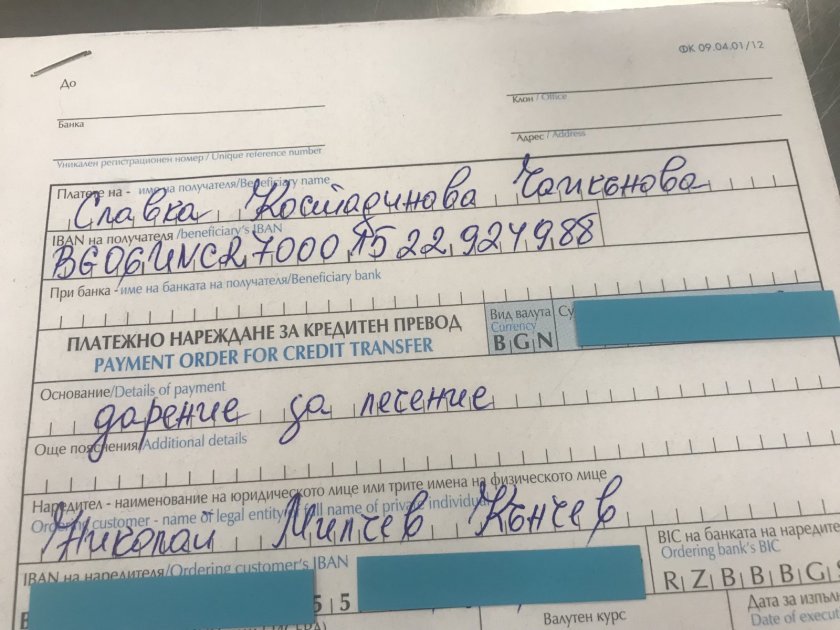 ФК 09.04.01/12
До
Банка
Клон / Office
Уникален регистрационен номер / Unique reference number
Адрес / Address
Платете на - име на получателя/Beneficiary name
Славка Костадинова Чолаконова
IBAN на получателя /beneficiary's IBAN
BG06UNCR70001522924988
При банка - име на банката на получателя/Beneficiary bank
ПЛАТЕЖНО НАРЕЖДАНЕ ЗА КРЕДИТЕН ПРЕВОД
PAYMENT ORDER FOR CREDIT TRANSFER
Вид валута
Currency
BGN
Су
Основание/Details of payment
дарение за лечение
Още пояснения/Additional details
Наредител - наименование на юридическото лице или трите имена на физическото лице
Ordering customer - name of legal entity/ full name of private individual
Николай Милчев Кънчев
IBAN на наредителя/Ordering customer's IBAN
5 5
BIC на банката на наредите
Ordering bank's BIC
RZBBBGS
Валутен курс
Дата за изпълн
Date of execut